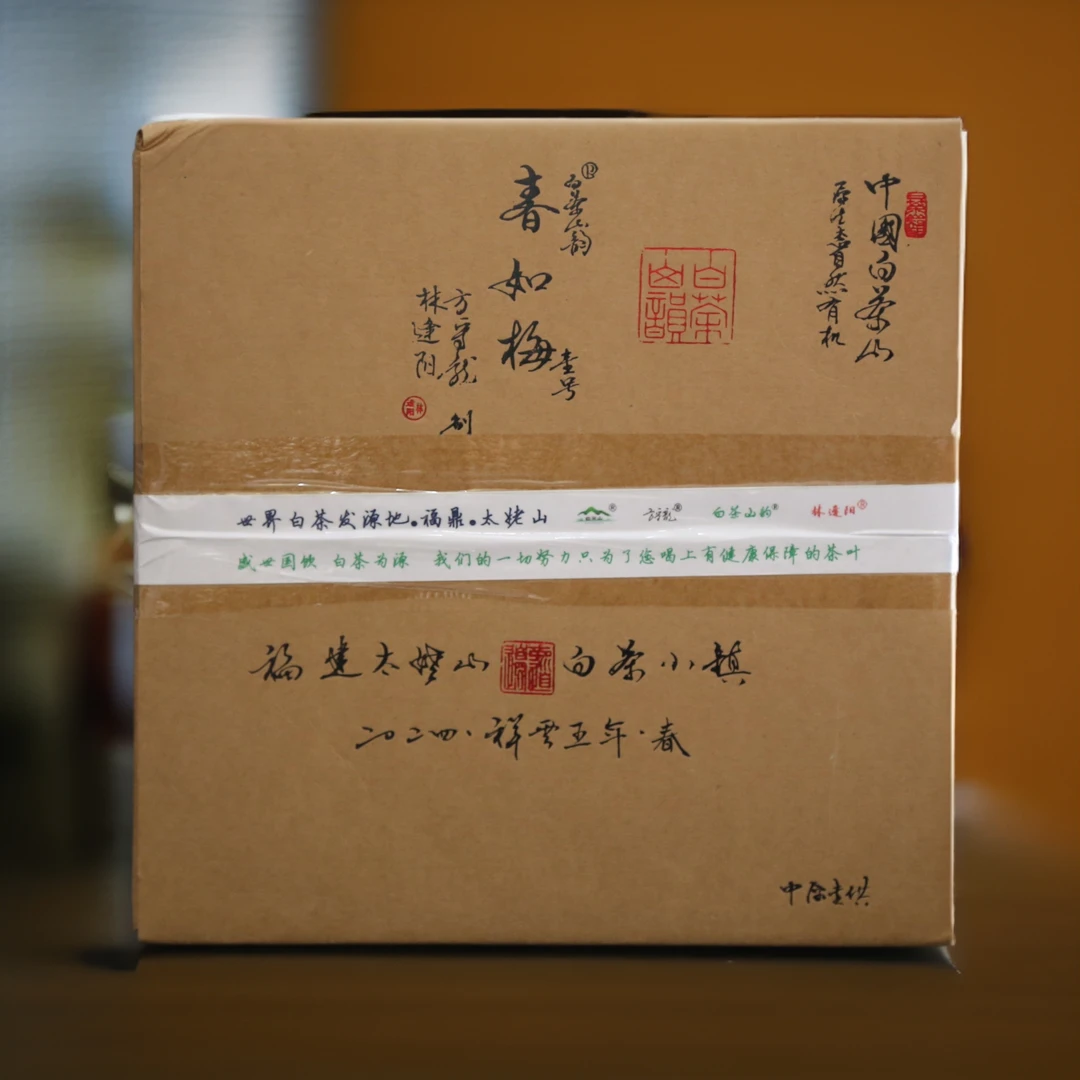 中國白茶山
原生态自然有机
白茶山韵
白茶山韻
春如梅
壹号
方守龙
林建阳 制
世界白茶发源地。福鼎。太姥山
白茶山韵® 林建阳®
盛世国饮 白茶为源 我们的一切努力只为了您喝上有健康保障的茶叶
福建太姥山 白茶小镇
二〇二四·祥云五年·春